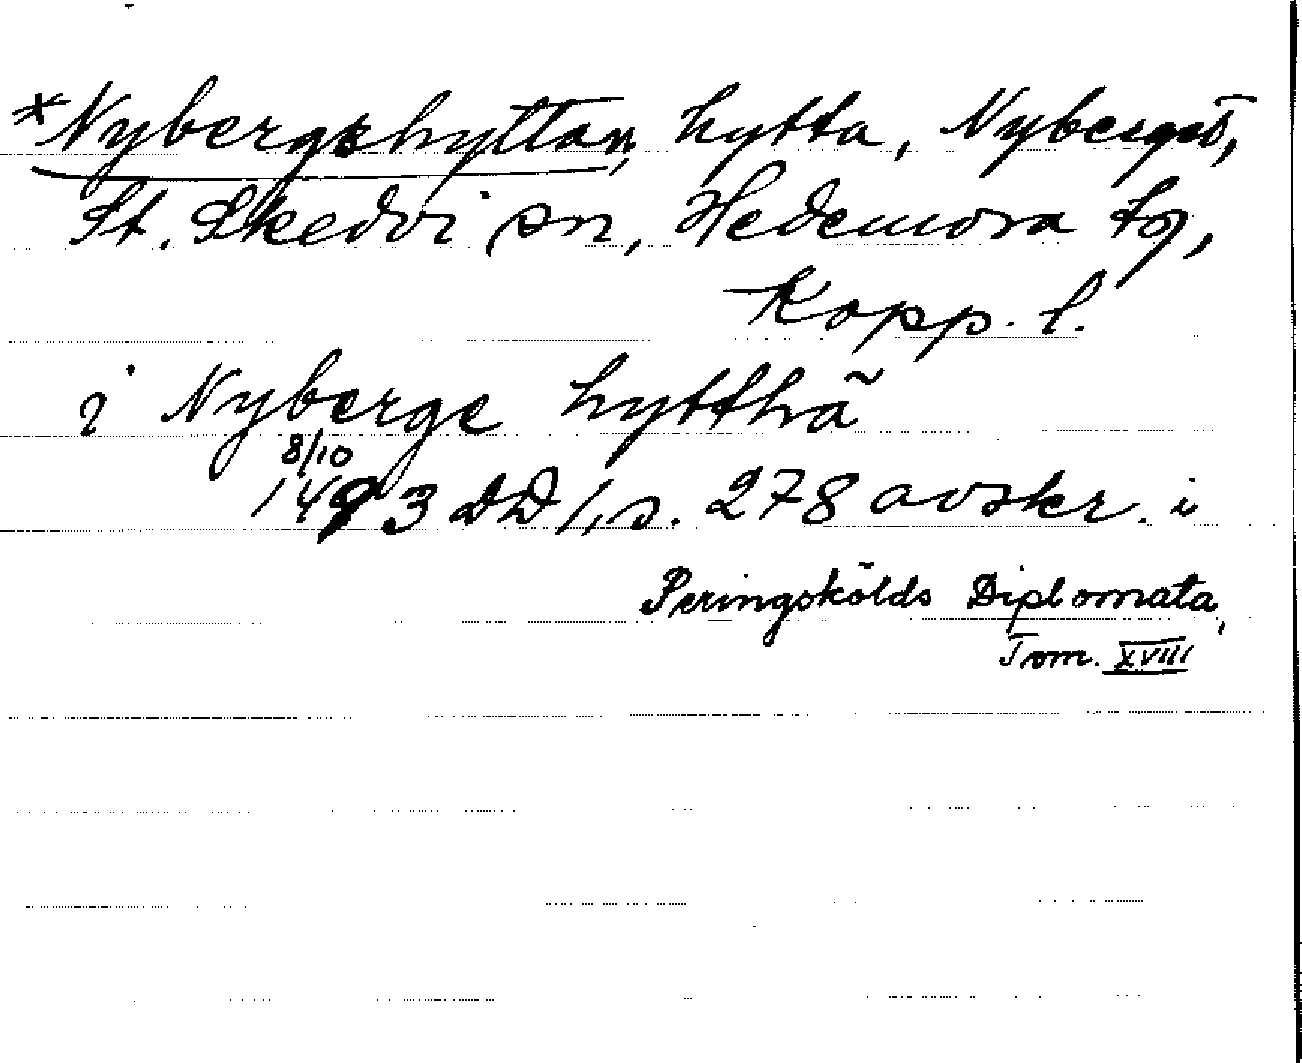 *Nybergshyttan, hytta, Nyberget,
St. Skedvi sn, Hedemora tg,
Kopp. l.
i Nyberge hytthā
8/10
1493 DD 1, s. 278 avskr. i
Peringskölds Diplomata,
Tom. XVIII